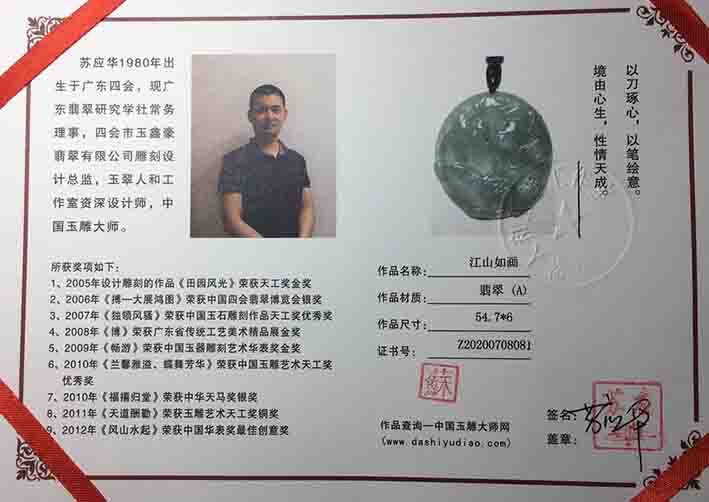 苏应华1980年出
生于广东四会，现广
东翡翠研究学社常务
理事，四会市玉鑫豪
翡翠有限公司雕刻设
计总监，玉翠人和工
作室资深设计师，中
国玉雕大师。
以刀琢心，以笔绘意。
境由心生，性情天成。
所获奖项如下：
1、2005年设计雕刻的作品《田园风光》荣获天工奖金奖
2、2006年《搏一大展鸿图》荣获中国四会翡翠博览会银奖
3、2007年《独领风骚》荣获中国玉石雕刻作品天工奖优秀奖
4、2008年《博》荣获广东省传统工艺美术精品展金奖
5、2009年《畅游》荣获中国玉器雕刻艺术华表奖金奖
6、2010年《兰馨雅溢、蝶舞芳华》荣获中国玉雕艺术天工奖
优秀奖
7、2010年《福禧归堂》荣获中华天马奖银奖
8、2011年《天道酬勤》荣获玉雕艺术天工奖铜奖
9、2012年《风山水起》荣获中国华表奖最佳创意奖
作品名称：江山如画
作品材质：翡翠（A）
作品尺寸：54.7*6
证书号：Z20200708081
作品查询—中国玉雕大师网
(www.dashiyudiao.com)
签名：苏应华
盖章：